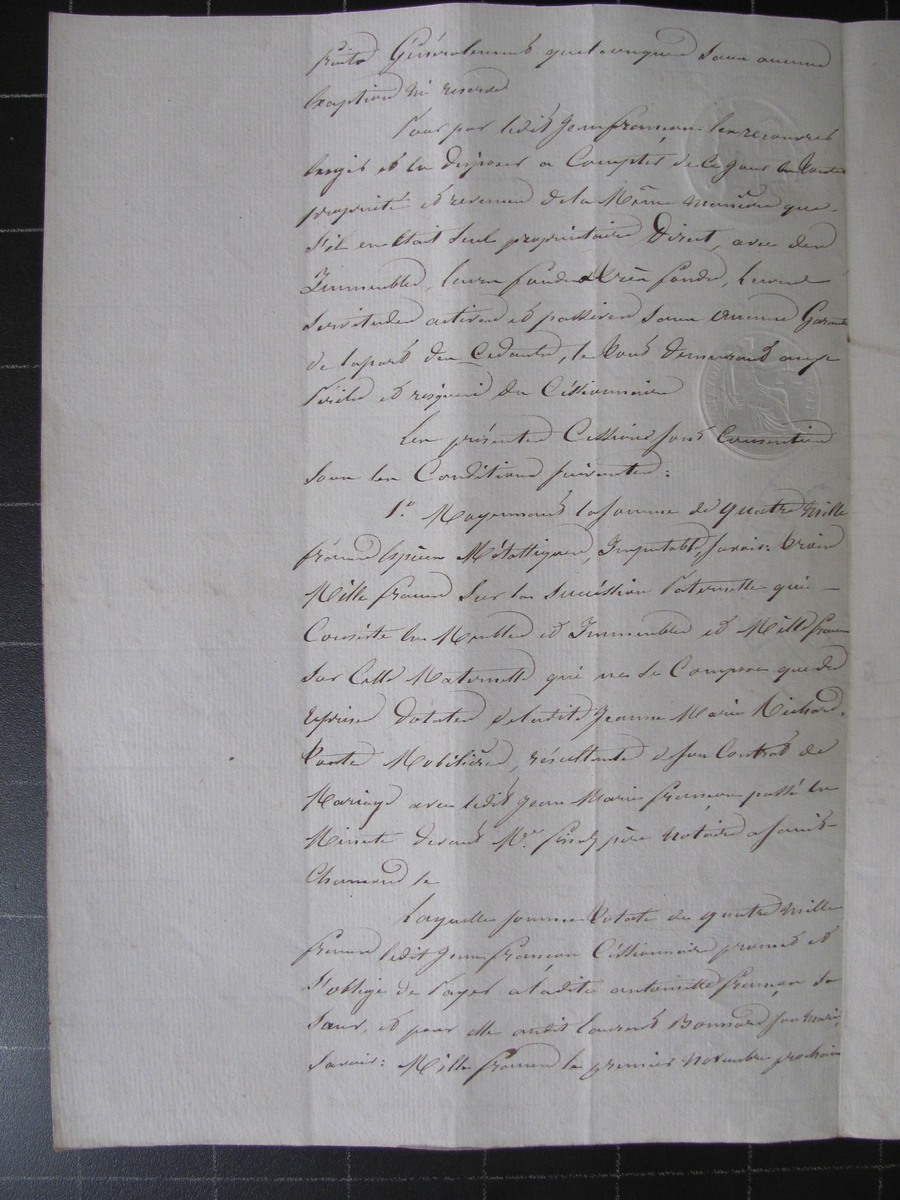 fruits Généralement quelconques sans aucune
Exception ni reserve
Pour par ledit Jean françois les recouvrer
Exiger et en disposer a Compter de Ce jour en toute
propriété et revenus de la Même manière que
S'il en était Seul propriétaire Direct, avec des
Immeubles, leurs fonds et très fonds, leurs
servitudes actives et passives sans aucune Garantie
de la part des Cédants, le tout demeurant aux
Périls et risques du Cessionnaire
Les présentes Cessions sont Consenties
sous les Conditions suivantes :
1.° Moyennant la somme de quatre Mille
francs Espèces Métalliques, Imputables savoir : trois
Mille francs sur la succession Paternelle qui
Consiste en Meubles et Immeubles et Mille francs
sur Celle Maternelle qui ne se Compose que des
reprises dotales de ladite Jeanne Marie Richard,
toutes Mobilières, résultantes de son Contrat de
Mariage avec ledit Jean Marie françois passé en
Minute devant M.e père Notaire a saint
Chamond le
Laquelle somme totale de quatre Mille
francs ledit Jean françois Cessionnaire promet et
S'oblige de Payer a ladite antoinette françois sa
sœur, et pour elle audit Laurent Bonnard son Mari,
savoir : Mille francs le premier Novembre prochain